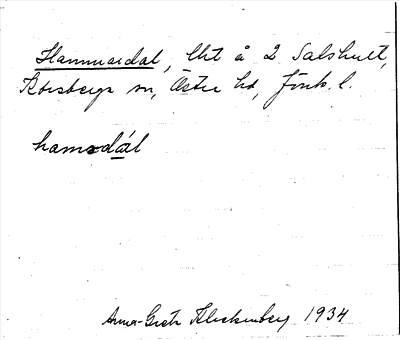 Hammardal, lht å 2 Salshult,
Korsberga sn, Östra hd, Jönk. l.
hamədál
Anna-Greta Kleckenberg 1934